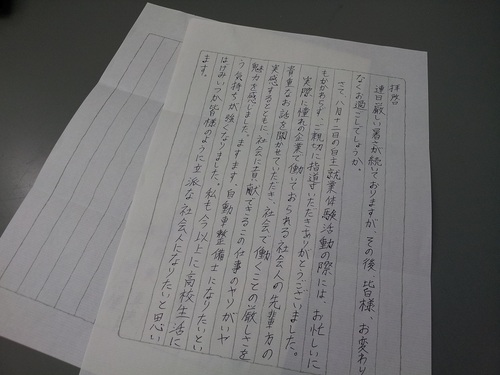 拝啓
連日厳しい暑さが続いておりますが、その後、皆様、お変わり
なくお過ごしでしょうか。
さて、八月十二日の自主就業体験活動の際には、お忙しいに
もかかわらず、ご親切に指導いただきありがとうございました。
実際に憧れの企業で働いておられる社会人の先輩方の
貴重なお話を聞かせていただき、社会で働くことの厳しさを
実感するとともに、社会に貢献できるこの仕事のやりがいや
魅力を感じました。ますます、自動車整備士になりたいとい
う気持ちが強くなりました。私も今以上に高校生活に
はげみいつか皆様のように立派な社会人になりたいと思い
ます。